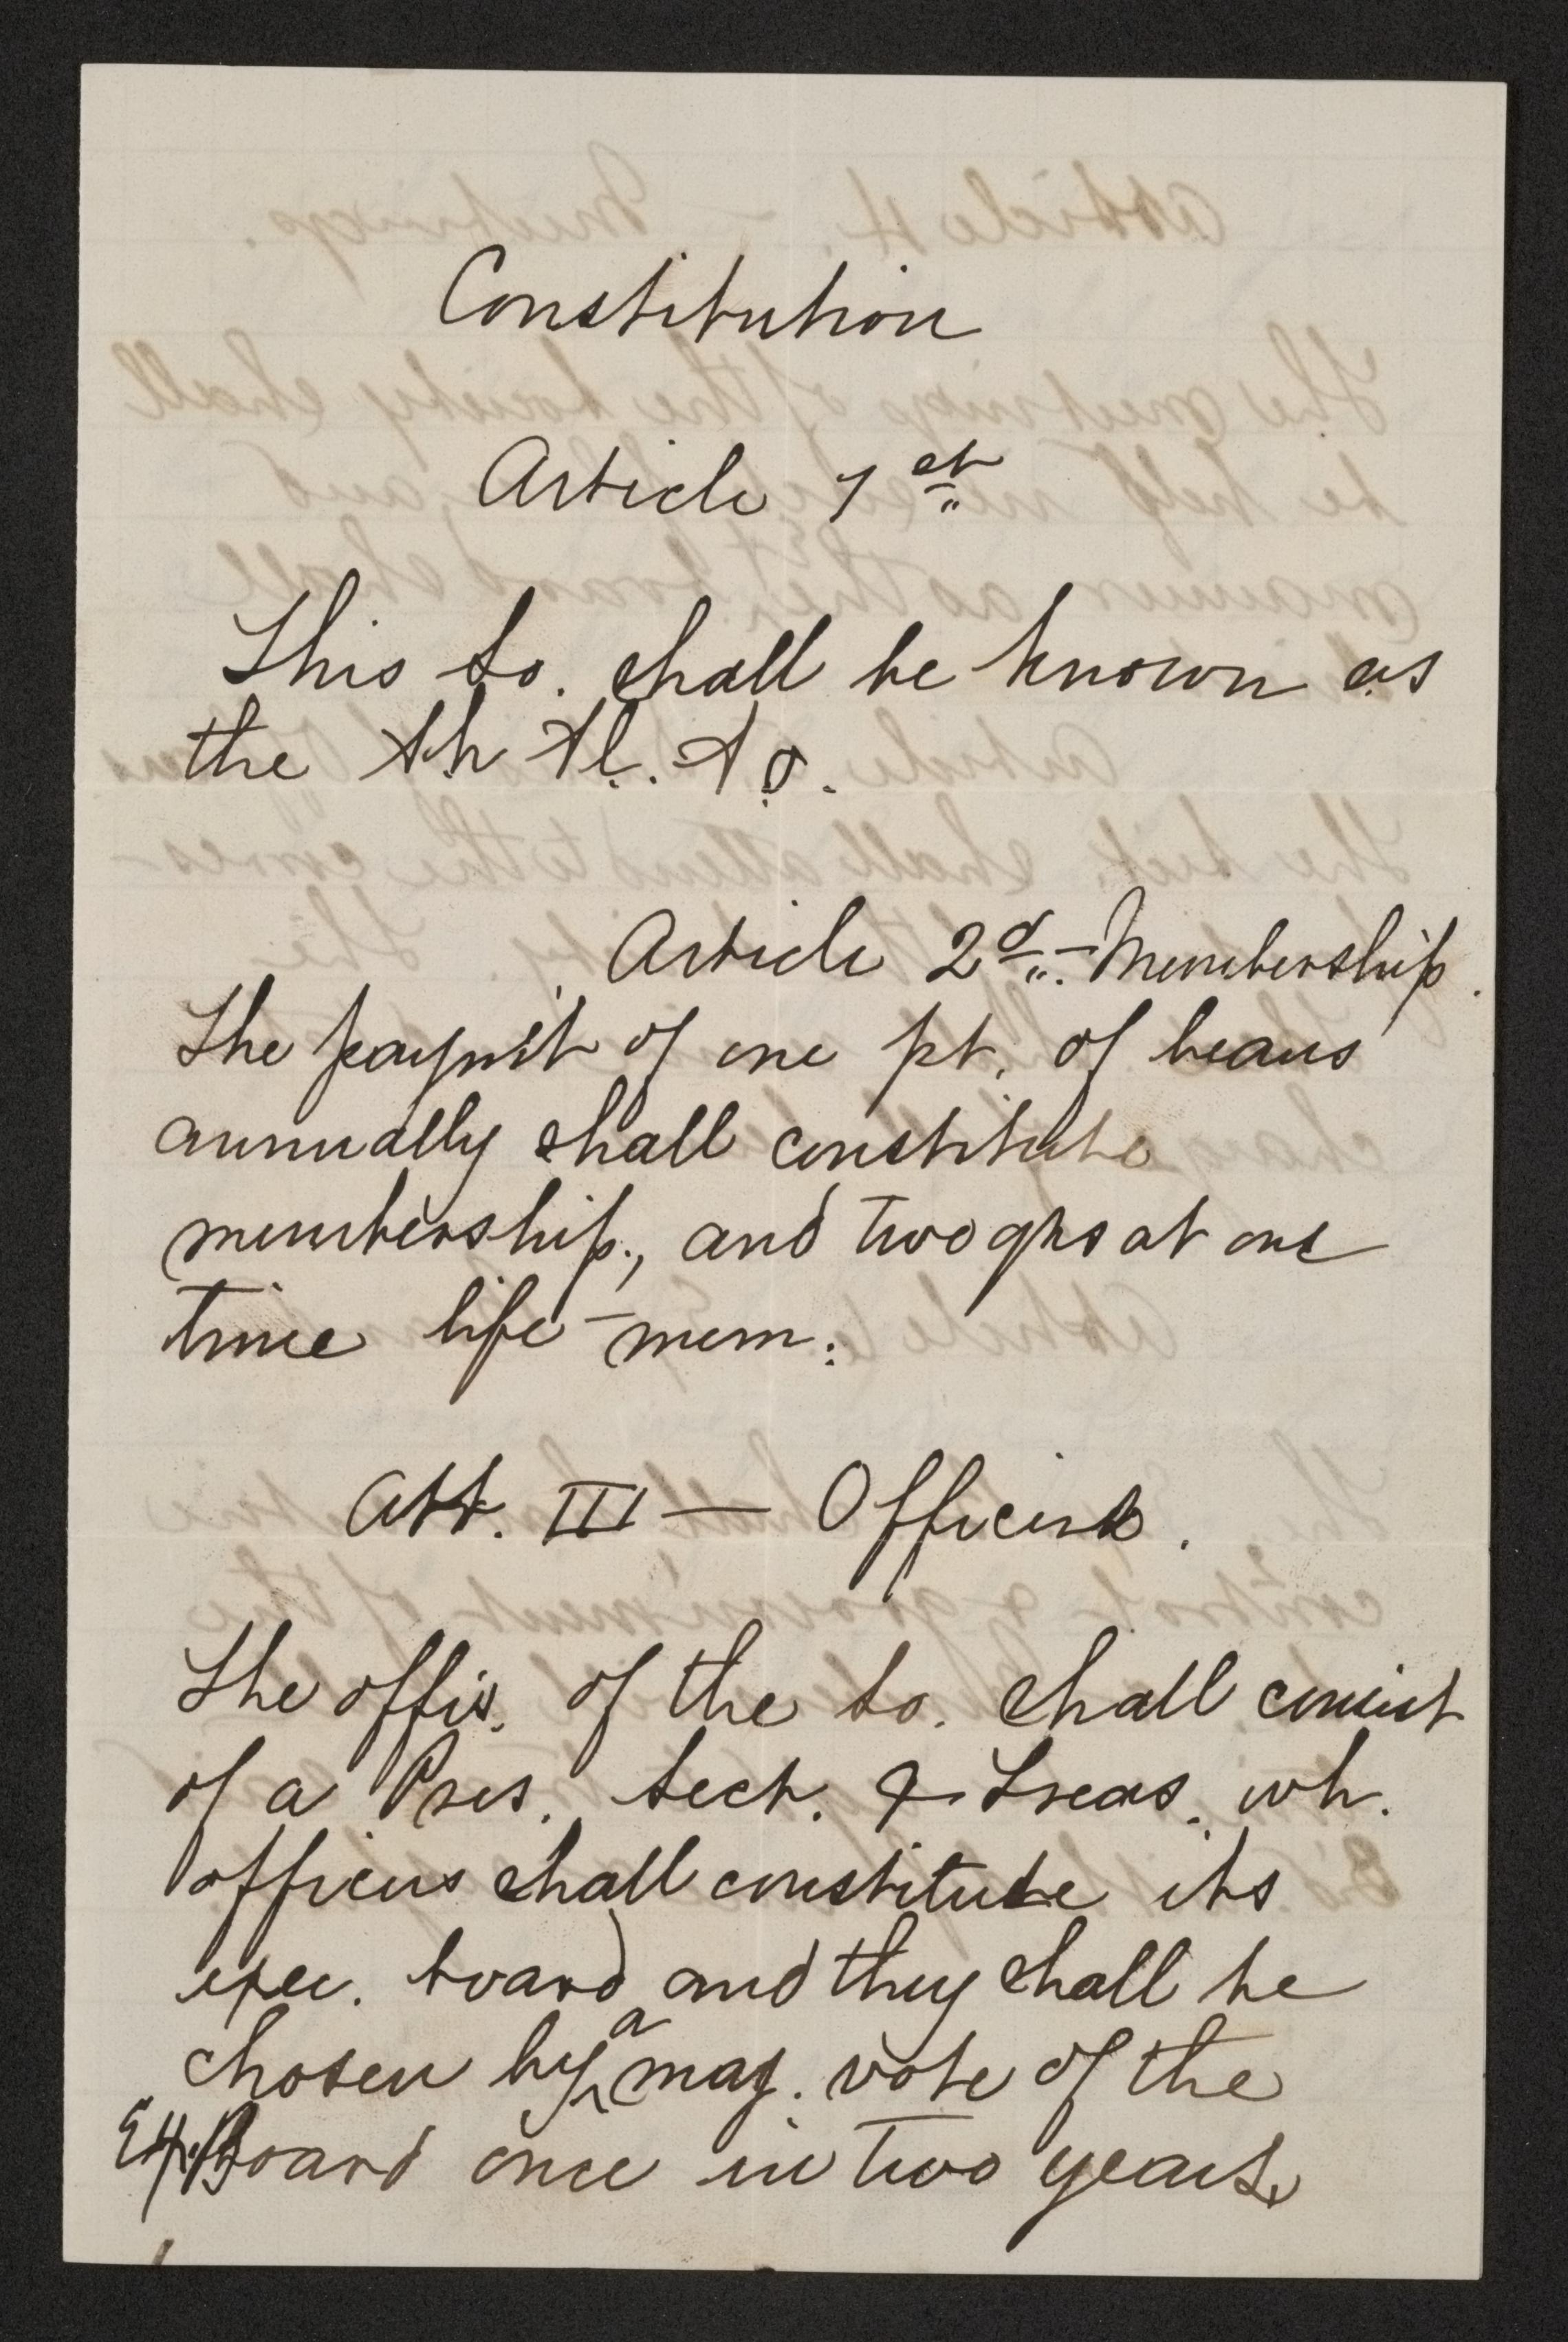 Constitution
Article 1st
This So. shall be known as
the
Article 2d. - Membership.
The paym't of one pt. of beans
annually shall constitute
membership, and two qts at one
time life - mem.
Art. III — Officers.
The offis. of the So. shall consist
of a Pres. Sect. & Treas. wh.
officers shall constitute its
exec. board and they shall be
chosen by a maj. vote of the
Ex. Board once in two years